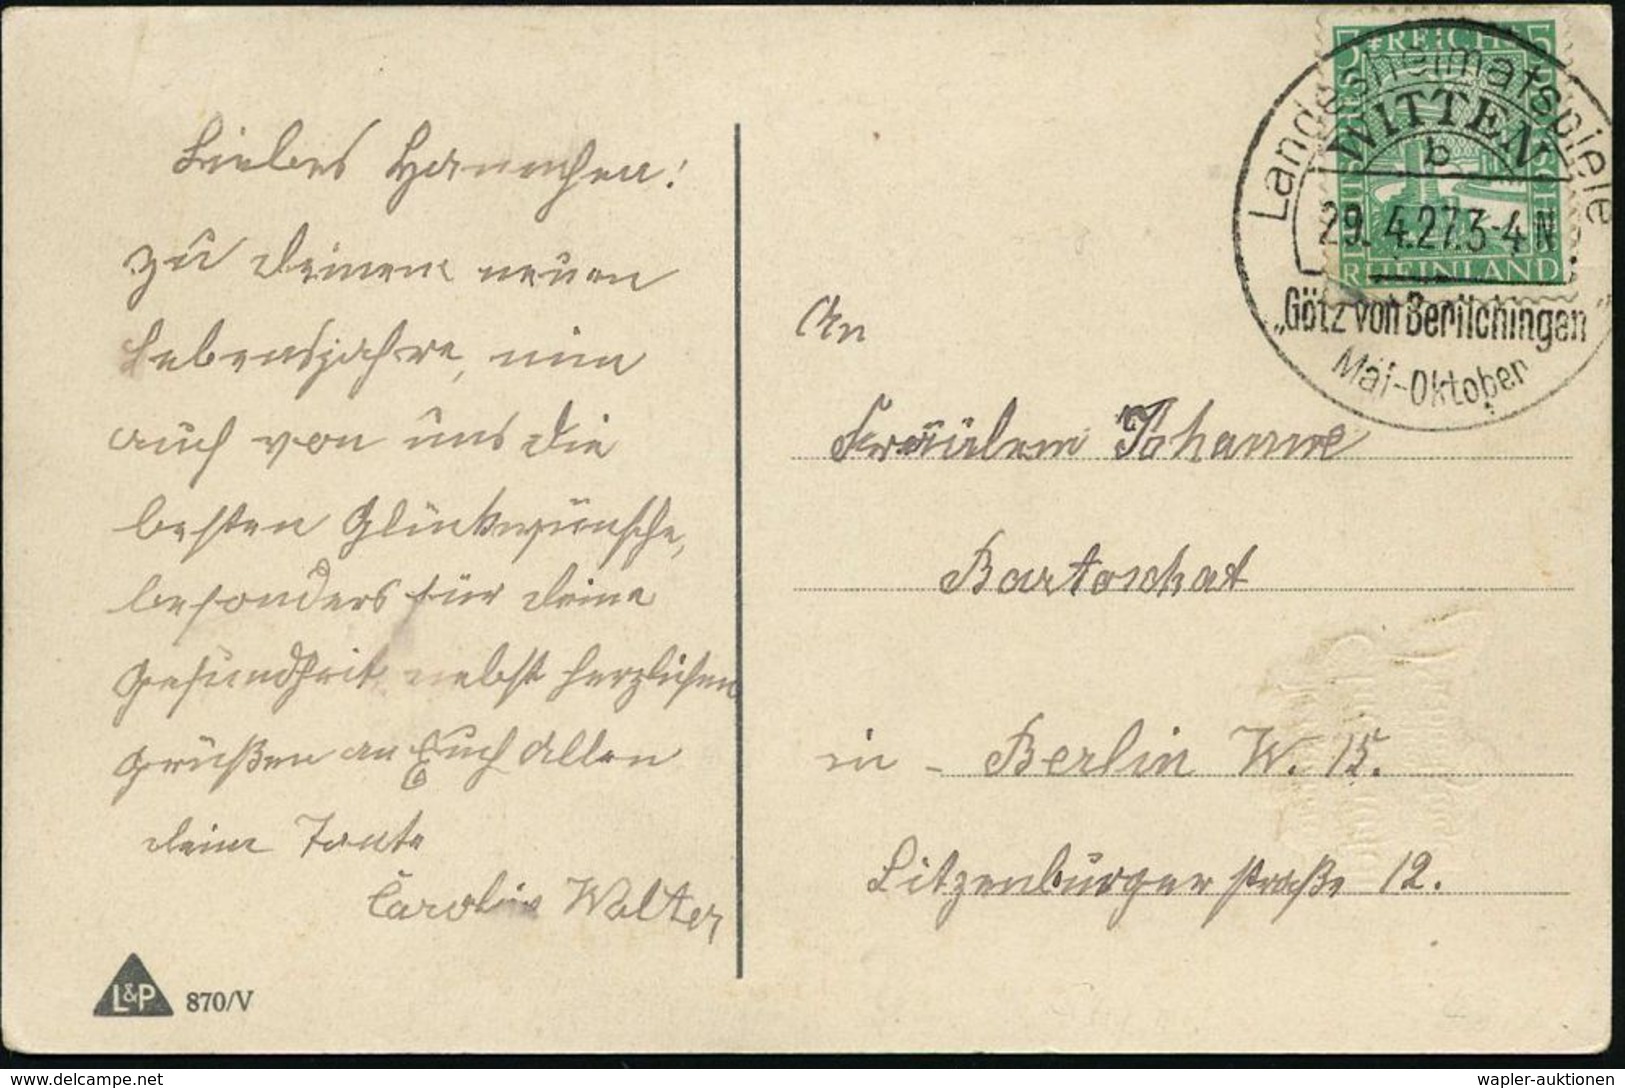 Liebes Hannchen!
zu deinem neuen
Lebensjahre, nim
auch von uns die
besten Glückwünsche,
besonders für deine
Gesundheit nebst herzlichen
Grüßen an Euch Allen
deine Tante
Caroline Walter
L&P 870/V
Landesheimatspiele
WITTEN
b
29. 4.27.3-4 N
„Götz von Berlichingen"
Mai-Oktober
5 REICH 5
RHEINLAND
An
Fräulein Johanne
Bartoschat
in - Berlin W. 15.
Litzenburgerstraße 12.
delcampe.net
wapler-auktionen